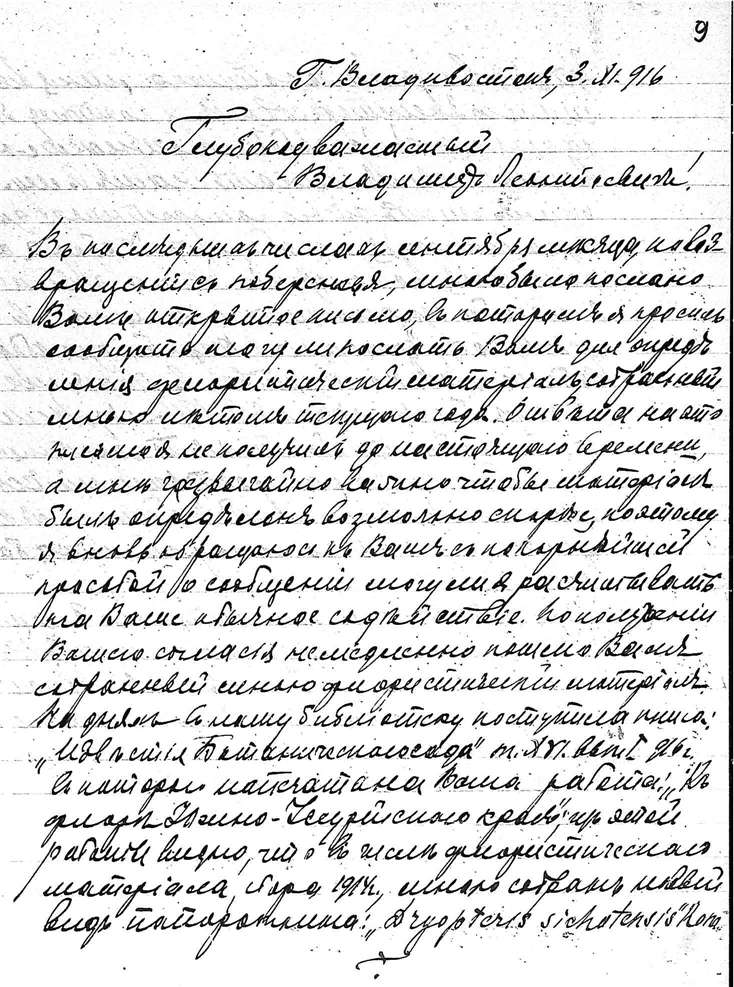 9
Г. Владивостокъ, 3. XI. 916
Глубокоуважаемый
Владимиръ Леонтьевичъ!
Въ последнихъ числахъ сентября месяца, по воз
вращенiи съ побережья, мною было послано
Вамъ открытое письмо, въ которомъ я просилъ
сообщить могу ли послать Вамъ для опредѣ
ленiя флористическiй матерiалъ собранный
мною лѣтомъ текущаго года. Отвѣта на это
письмо я не получилъ до настоящаго времени,
а мнѣ чрезвычайно важно чтобы матерiалъ
былъ опредѣленъ возможно скорѣе, поэтому
я вновь обращаюсь къ Вамъ съ покорнѣйшей
просьбой о сообщенiи могу ли я расчитывать
на Ваше обычное содѣйствiе. По полученiи
Вашего согласiя немедленно пошлю Вамъ
собранный мною флористическiй матерiалъ.
На дняхъ въ нашу библiотеку поступила книга:
„Извѣстiя Ботаническаго сада" т. XVI. вып. I 916 г.
въ которой напечатана Ваша работа: „Къ
флорѣ Южно-Уссурiйскаго края", изъ этой
работы видно, что въ числѣ флористическаго
матерiала, сбора 1914 г., мною собранъ новый
видъ папоротника: „Dryopteris sichotensis" Kom.